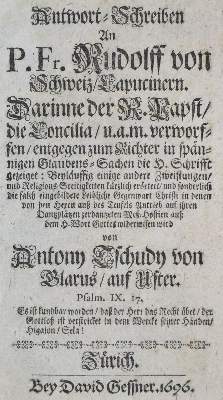 Antwort-Schreiben
An
P. Fr. Rudolff von
Schweiz/ Capucinern.
Darinne der R. Papst/
die Concilia/ u.a.m. verworf-
fen/ entgegen zum Richter in spän-
nigen Glaubens-Sachen die H. Schrifft
gezeiget: Beyläuffig einige andere Zweifflungen/
und Religions Streitigkeiten kürtzlich erörtert/ und sonderlich
die falsch eingebildete leibliche Gegenwart Christi in denen
von den Hexen auß des Teufels Antrieb auf ihren
Tantzplätzen zerhauten Meß-Hostien auß
dem H. Wort Gottes widerwisen wird
von
Antony Tschudy von
Glarus/ auf Uster.
Psalm. IX. 17.
Es ist kundbar worden/ daß der Herr das Recht übet/ der
Gottloß ist verstricket in dem Werck seiner Händen/
Higaion/ Sela!
Zürich.
Bey David Gessner. 1696.